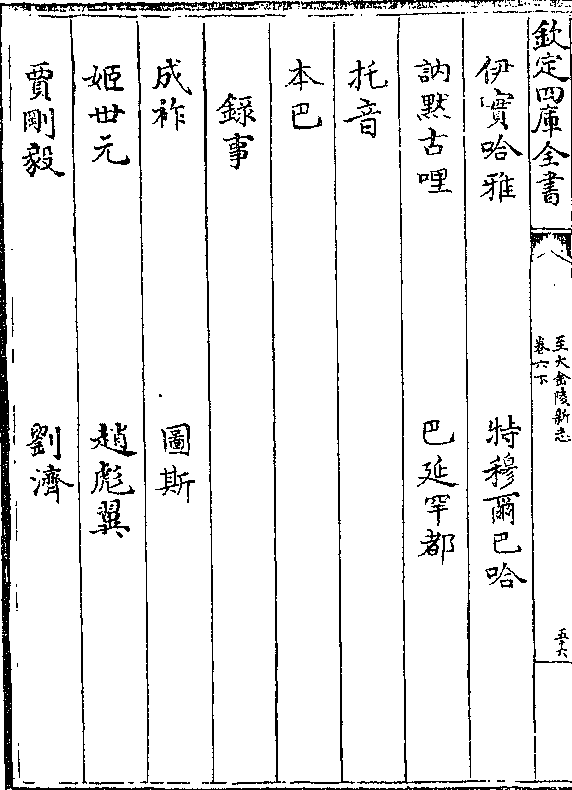 欽定四庫全書
至大金陵新志
卷六下
五十六
伊實哈雅　特穆爾巴哈
訥黙古哩　巴延罕都
托音
本巴
錄事
成祚　圖斯
姬世元　趙彪翼
賈剛毅　劉濟